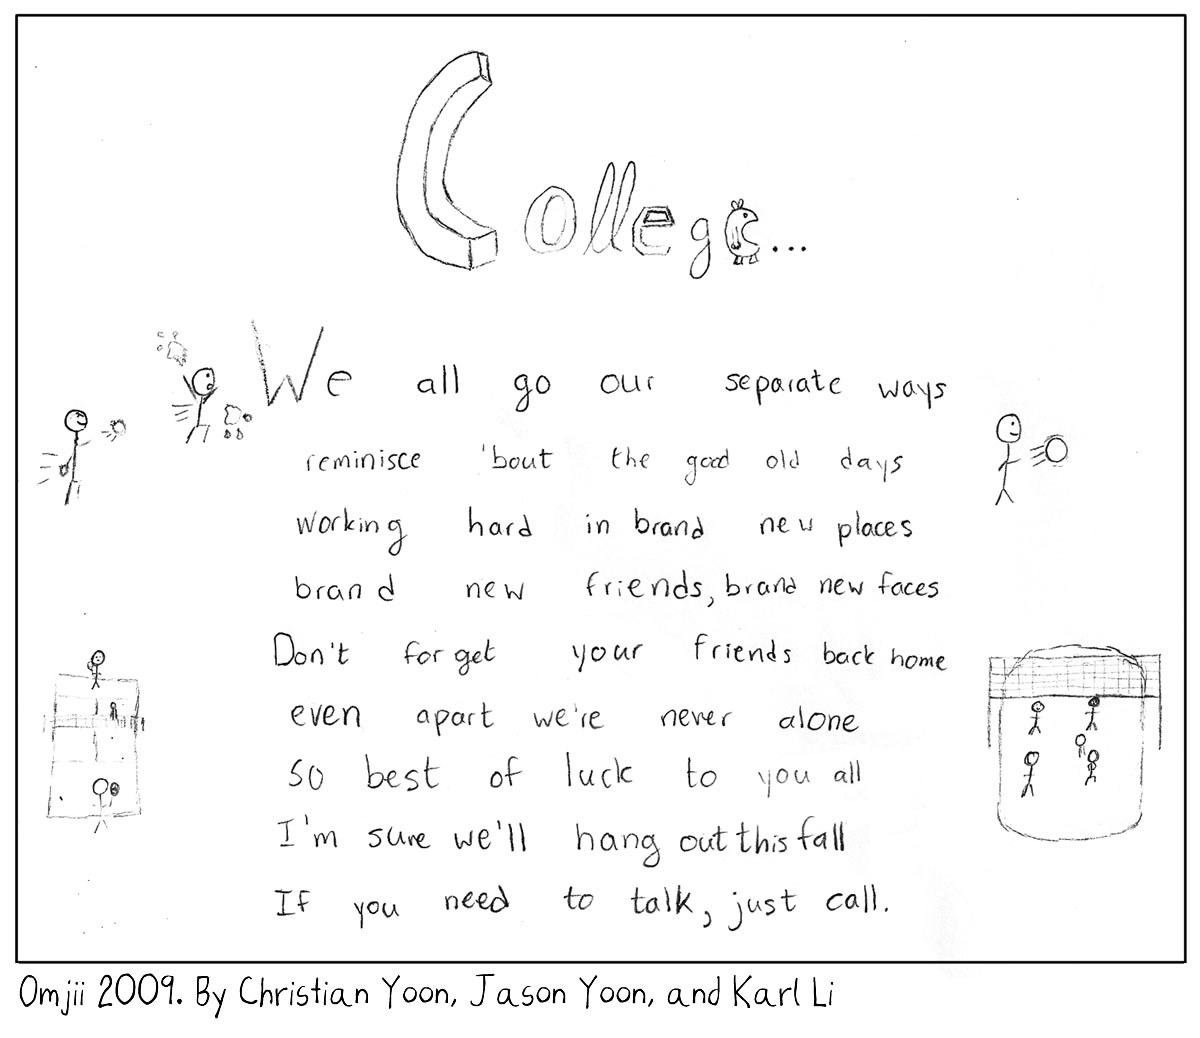 College...
We all go our separate ways
reminisce 'bout the good old days
working hard in brand new places
brand new friends, brand new faces
Don't forget your friends back home
even apart we're never alone
so best of luck to you all
I'm sure we'll hang out this fall
If you need to talk, just call.
Omjii 2009. By Christian Yoon, Jason Yoon, and Karl Li